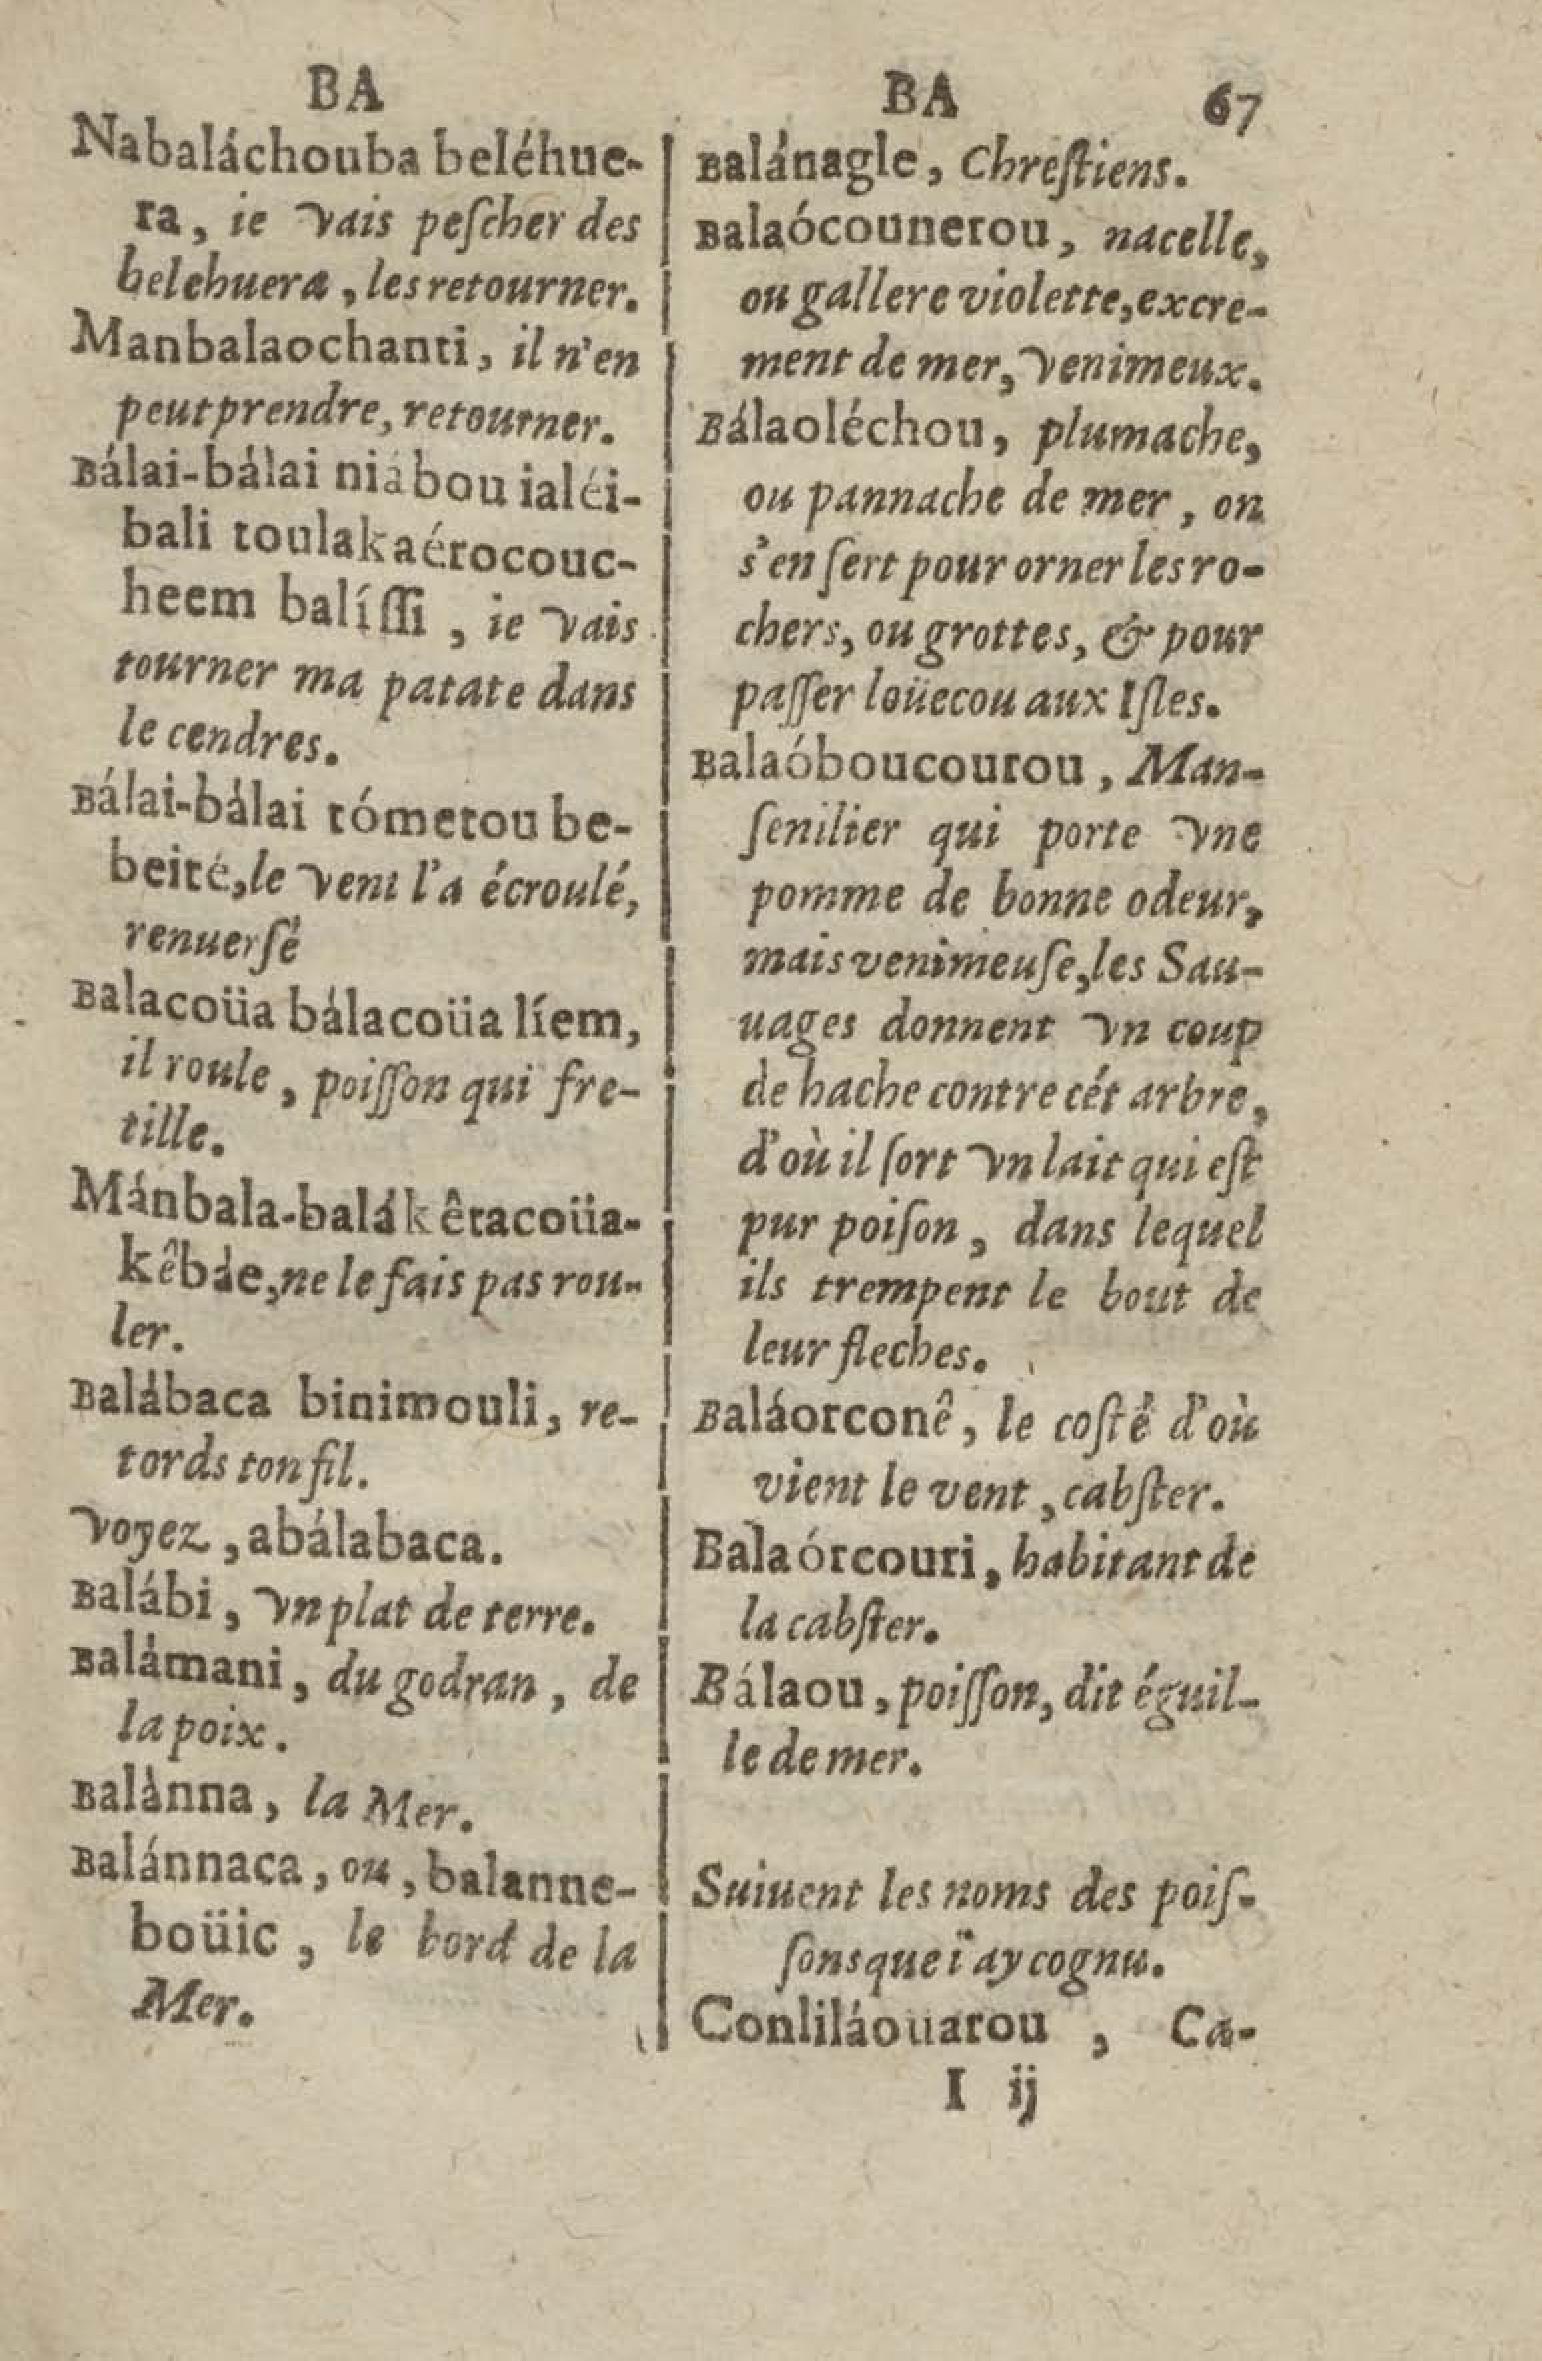 BA
Nabaláchouba beléhue-
ra, ie vais peſcher des
belehuera, les retourner.
Manbalaochanti, il n'en
peut prendre, retourner.
Bálai-bálai niábou ialéi-
bali toulakaérocouc-
heem balíſſi, ie vais
tourner ma patate dans
le cendres.
Bálai-bálai tómetou be-
beité, le vent l'a écroulé,
renuerſé
Balacoüa bálacoüa líem,
il roule, poiſſon qui fre-
tille.
Mánbala-balákêtacoüa-
kêbáe, ne le fais pas rou-
ler.
Balábaca binimouli, re-
tords ton fil.
Voyez, abálabaca.
Balábi, vn plat de terre.
Balámani, du godran, de
la poix.
Balànna, la Mer.
Balánnaca, ou, balanne-
boüic, le bord de la
Mer.
BA 67
Balánagle, Chreſtiens.
Balaócounerou, nacelle,
ou gallere violette, excre-
ment de mer, venimeux.
Bálaoléchou, plumache,
ou pannache de mer, on
s'en ſert pour orner les ro-
chers, ou grottes, & pour
paſſer loüecou aux Iſles.
Balaóboucourou, Man-
ſenilier qui porte vne
pomme de bonne odeur,
mais venimeuſe, les Sau-
uages donnent vn coup
de hache contre cét arbre,
d'où il ſort vn lait qui eſt
pur poiſon, dans lequel
ils trempent le bout de
leur fleches.
Baláorconê, le coſté d'où
vient le vent, cabſter.
Balaórcouri, habitant de
la cabſter.
Bálaou, poiſſon, dit éguil-
le de mer.
Suiuent les noms des poiſ-
ſons que i'ay cognu.
Conliláouarou, Ca-
I ij